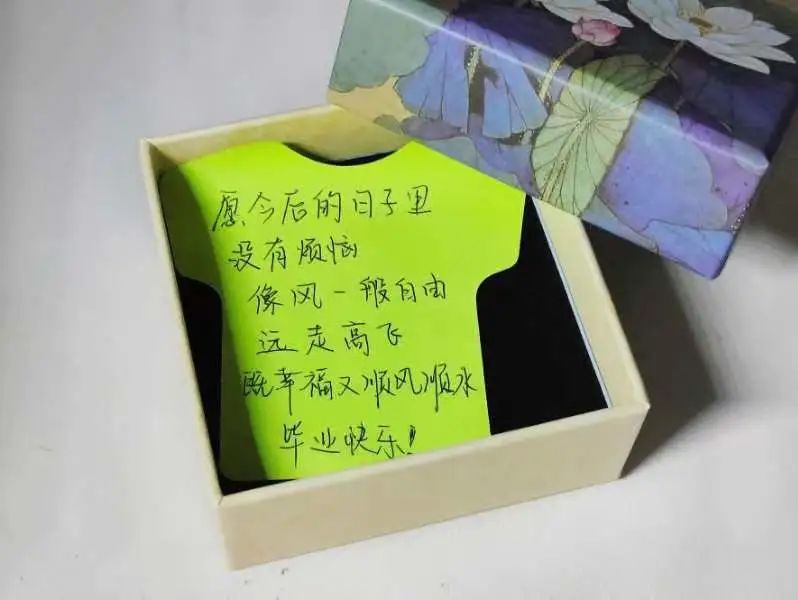 愿今后的日子里
没有烦恼
像风一般自由
远走高飞
既幸福又顺风顺水
毕业快乐!